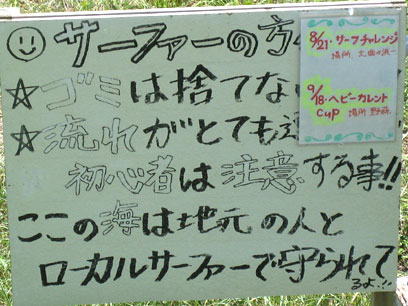 サーファーの方
☆ゴミは捨てない
☆流れがとても
初心者は注意する事!!
ここの海は地元の人と
ローカルサーファーで守られて
るよ!!
8/21・サーフチャレンジ
場所
9/18・ヘビーカレント
cup 場所